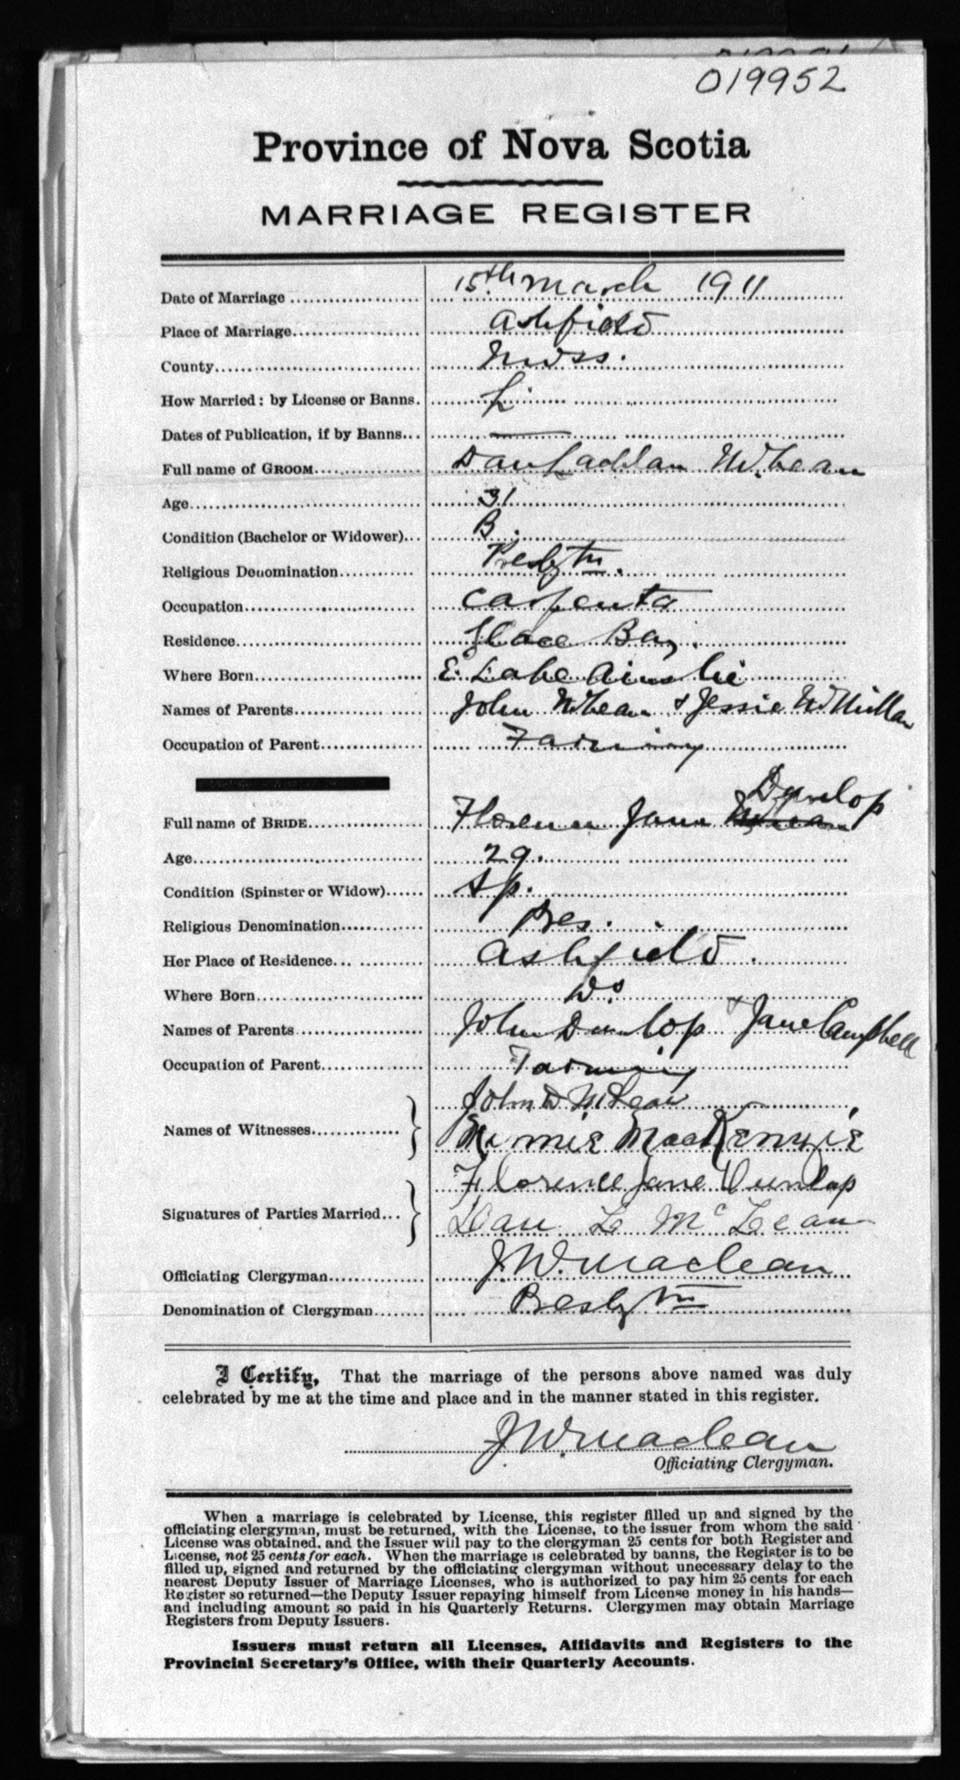 019952
Province of Nova Scotia
MARRIAGE REGISTER
Date of Marriage 15th March 1911
Place of Marriage Ashfield
County Invss.
How Married: by License or Banns. Li
Dates of Publication, if by Banns
Full name of GROOM Dan Lachlan McLean
Age 31
Condition (Bachelor or Widower) B.
Religious Denomination Presbytn.
Occupation Carpenter
Residence Glace Bay.
Where Born E. Lake Ainslie
Names of Parents John McLean & Jessie McMillan
Occupation of Parent Farming
Dunlop
Full name of BRIDE Florence Jane McLean
Age 29.
Condition (Spinster or Widow) Sp.
Religious Denomination Pres.
Her Place of Residence Ashfield.
Where Born Do
Names of Parents John Dunlop & Jane Campbell
Occupation of Parent Farming
John D McLean
Names of Witnesses Minnie MacKenzie
Florence Jane Dunlap
Signatures of Parties Married Dan L McLean
Officiating Clergyman J.W. Maclean
Denomination of Clergyman Presbytn
I Certify, That the marriage of the persons above named was duly
celebrated by me at the time and place and in the manner stated in this register.
J.W. Maclean
Officiating Clergyman.
When a marriage is celebrated by License, this register filled up and signed by the
officiating clergyman, must be returned, with the License, to the issuer from whom the said
License was obtained, and the Issuer will pay to the clergyman 25 cents for both Register and
License, not 25 cents for each. When the marriage is celebrated by banns, the Register is to be
filled up, signed and returned by the officiating clergyman without unecessary delay to the
nearest Deputy Issuer of Marriage Licenses, who is authorized to pay him 25 cents for each
Register so returned—the Deputy Issuer repaying himself from License money in his hands—
and including amount so paid in his Quarterly Returns. Clergymen may obtain Marriage
Registers from Deputy Issuers.
Issuers must return all Licenses, Affidavits and Registers to the
Provincial Secretary's Office, with their Quarterly Accounts.